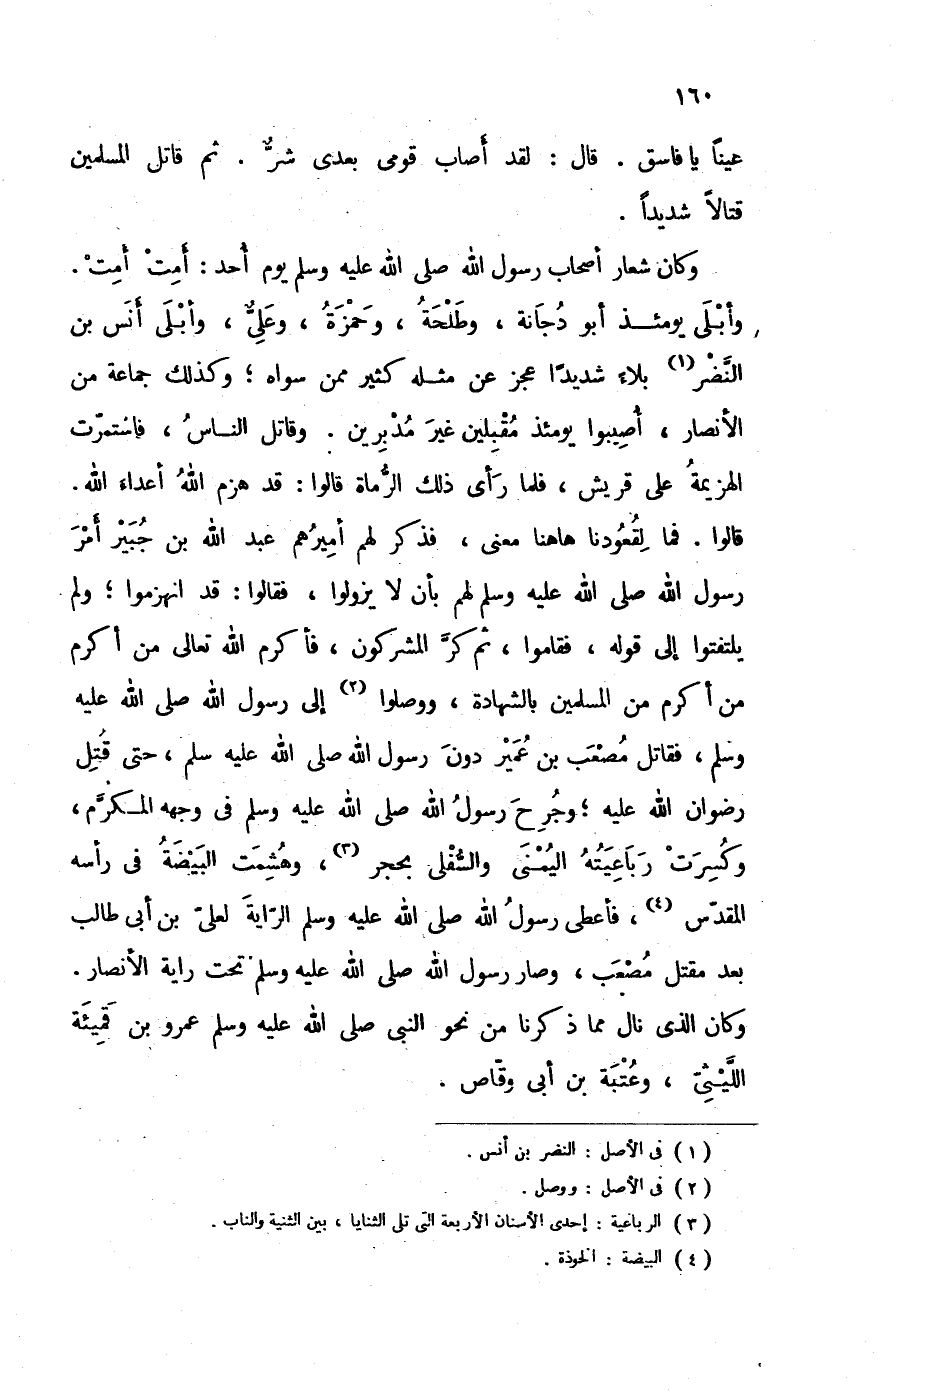 ١٦٠
عيناً يا فاسق . قال : لقد أَصاب قومى بعدى شرٌّ . ثم قاتل المسلمين
قتالاً شديداً .
وكان شعار أصحاب رسول الله صلى الله عليه وسلم يوم أُحد : أَمِتْ أَمِتْ .
وأبْلَى يومئـذ أبو دُجَانة ، وطَلْحَةُ ، وحَمْزَةُ ، وعَلِىٌّ ، وأبْـلَى أَنَس بن
النَّضْر (١) بلاء شديدًا عجز عن مثـله كثير ممن سواه ؛ وكذلك جماعة من
الأنصار ، أُصِيبوا يومئذ مُقْبِلين غيرَ مُدْبِرين . وقاتل النـاسُ ، فاسْتمرّت
الهزيمةُ على قريش ، فلما رَأى ذلك الرُّماة قالوا : قد هزم اللهُ أعداء الله .
قالوا . فما لِقُعُودنا هاهنا معنى ، فذكر لهم أميرُهم عبد الله بن جُبَيْر أَمْرَ
رسول الله صلى الله عليه وسلم لهم بأن لا يزولوا ، فقالوا : قد انهزموا ؛ ولم
يلتفتوا إلى قوله ، فقاموا ، ثم كرَّ المشركون ، فأكرم الله تعالى من أكرم
من أكرم من المسلمين بالشهادة ، ووصلوا (٢) إلى رسول الله صلى الله عليه
وسلم ، فقاتل مُصْعَب بن عُمَيْر دونَ رسول الله صلى الله عليه سلم ، حتى قُتِل
رضوان الله عليه ؛ وجُرِحَ رسولُ الله صلى الله عليه وسلم فى وجهه المـكرَّم ،
وكُسِرَتْ رَبَاعِيَتُهُ اليُمْـنَى والسُّفْلى بحجر (٣) ، وهُشِمَت البَيْضَةُ فى رأسه
المقدّس (٤) ، فأعطى رسولُ الله صلى الله عليه وسلم الرّايةَ لعلىّ بن أبى طالب
بعد مقتل مُصْعَب ، وصار رسول الله صلى الله عليه وسلم تحت راية الأنصار .
وكان الذى نال مما ذكرنا من نحو النبى صلى الله عليه وسلم عمرو بن قَمِيئَة
اللَّيْـثِىّ ، وعُتْبَة بن أبى وقّاص .
(١) فى الأصل : النضر بن أنس .
(٢) فى الأصل : ووصل .
(٣) الرباعية : إحدى الأسنان الأربعة التى تلى الثنايا ، بين الثنية والناب .
(٤) البيضة : الخوذة .